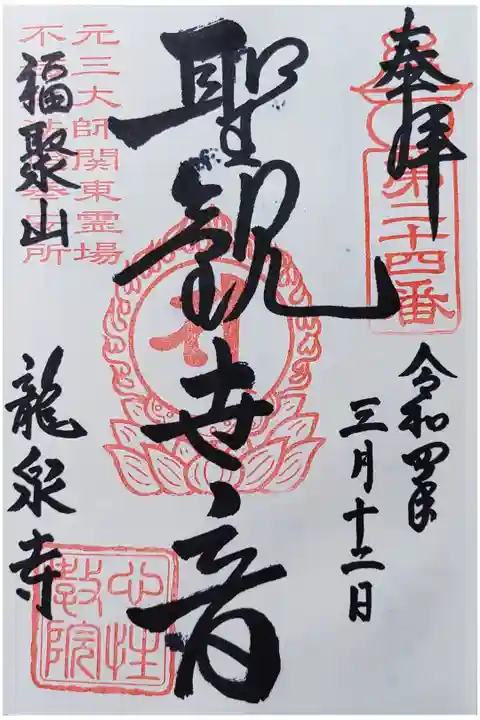 奉拝
第二十四番
令和四年
三月十二日
聖観世音
元三大師関東霊場
福聚山
龍泉寺
心性
教院